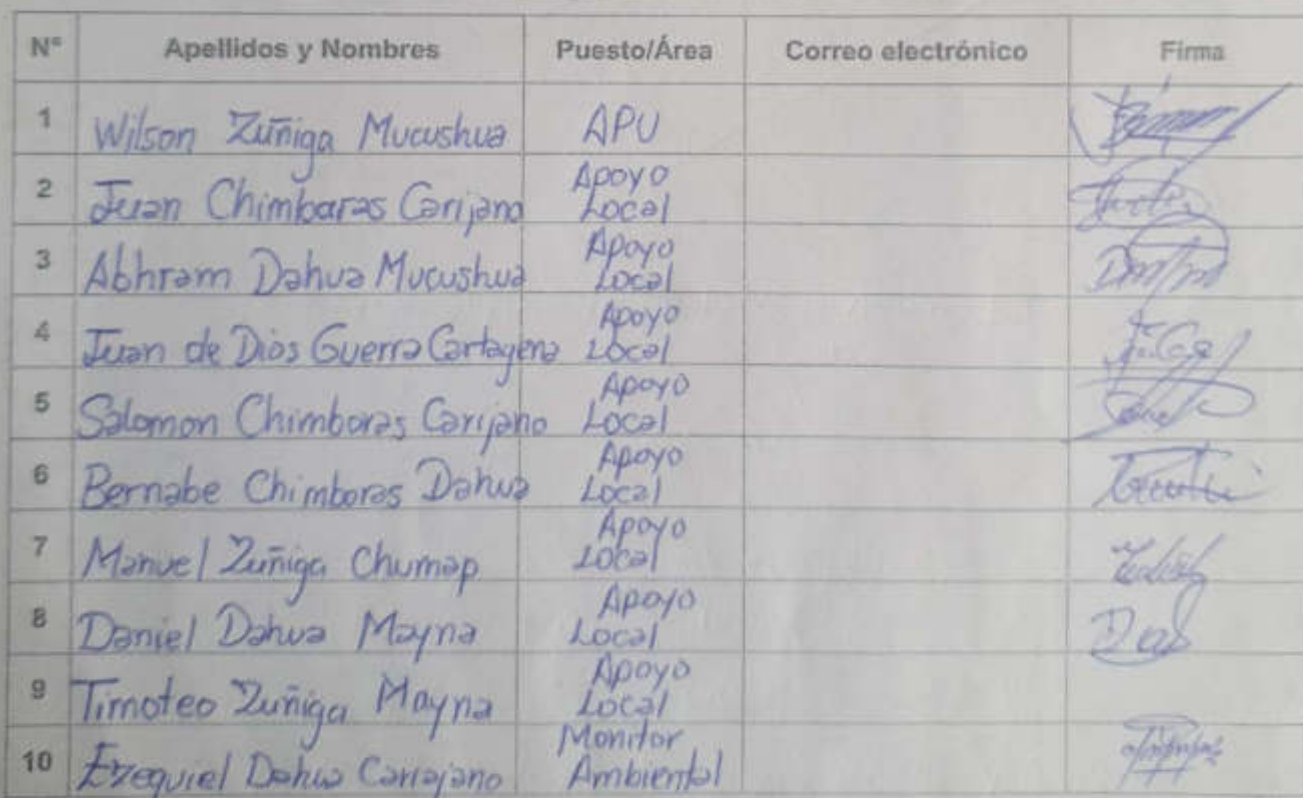 N° Apellidos y Nombres Puesto/Área Correo electrónico Firma
1 Wilson Zuñiga Mucushua APU
2 Juan Chimbaras Carijano Apoyo Local
3 Abhram Dahua Mucushua Apoyo Local
4 Juan de Dios Guerra Cartagena Apoyo Local
5 Salomon Chimboras Carijano Apoyo Local
6 Bernabe Chimboras Dahua Apoyo Local
7 Manuel Zuñiga Chumap Apoyo Local
8 Daniel Dahua Mayna Apoyo Local
9 Timoteo Zuñiga Mayna Apoyo Local
10 Ezequiel Dahua Cariajano Monitor Ambiental